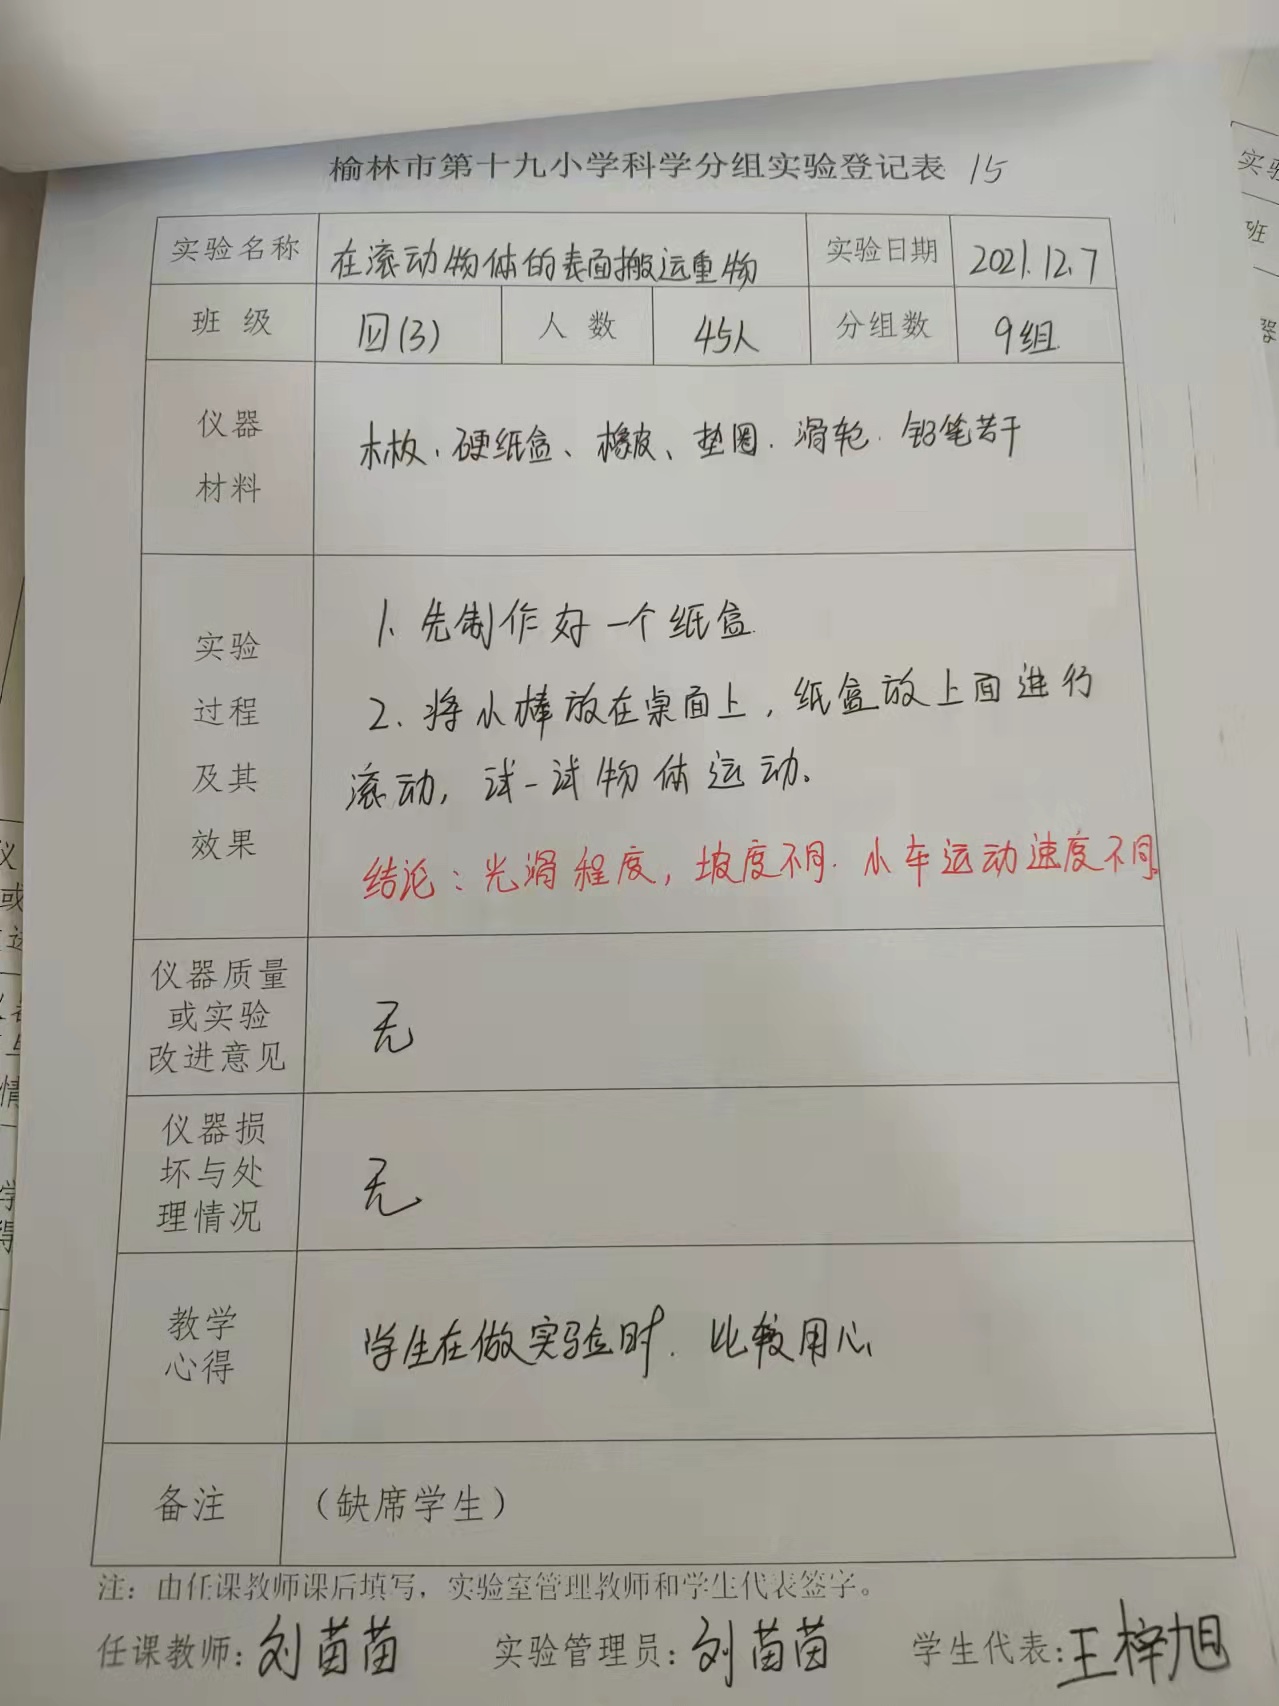 榆林市第十九小学科学分组实验登记表 15
实验名称 在滚动物体的表面搬运重物 实验日期 2021.12.7
班 级 四(3) 人 数 45人 分组数 9组
仪器
材料
木板、硬纸盒、橡皮、垫圈、滑轮、铅笔若干
实验
过程
及其
效果
1、先制作好一个纸盒
2、将小棒放在桌面上，纸盒放上面进行
滚动，试一试物体运动。
结论：光滑程度，坡度不同.小车运动速度不同。
仪器质量
或实验
改进意见
无
仪器损
坏与处
理情况
无
教学
心得
学生在做实验时.比较用心
备注 （缺席学生）
注：由任课教师课后填写，实验室管理教师和学生代表签字。
任课教师：刘苗苗 实验管理员：刘苗苗 学生代表：王梓旭